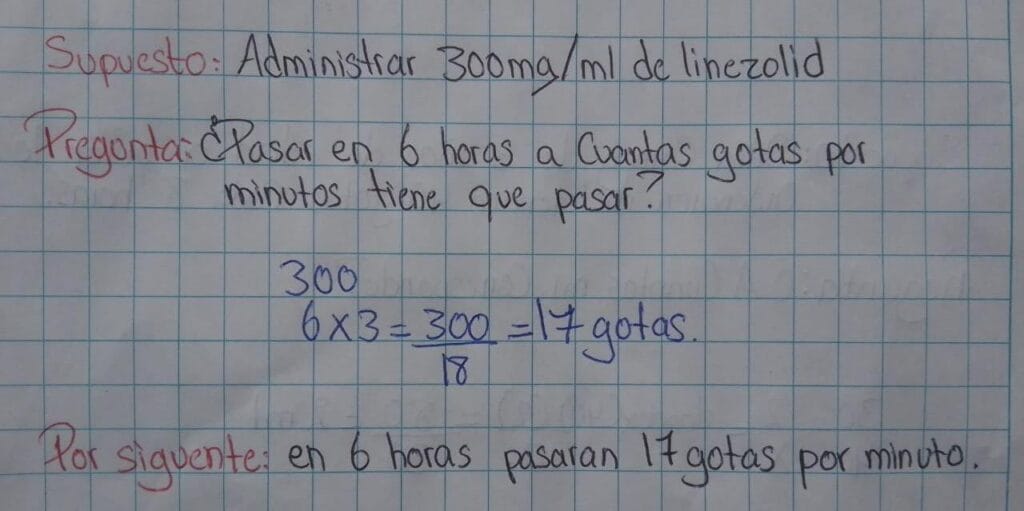 Supuesto: Administrar 300mg/ml de linezolid
Pregunta: ¿Pasar en 6 horas a Cuantas gotas por
minutos tiene que pasar?
300
6x3 = 300/18 = 17 gotas.
Por siguente: en 6 horas pasaran 17 gotas por minuto.